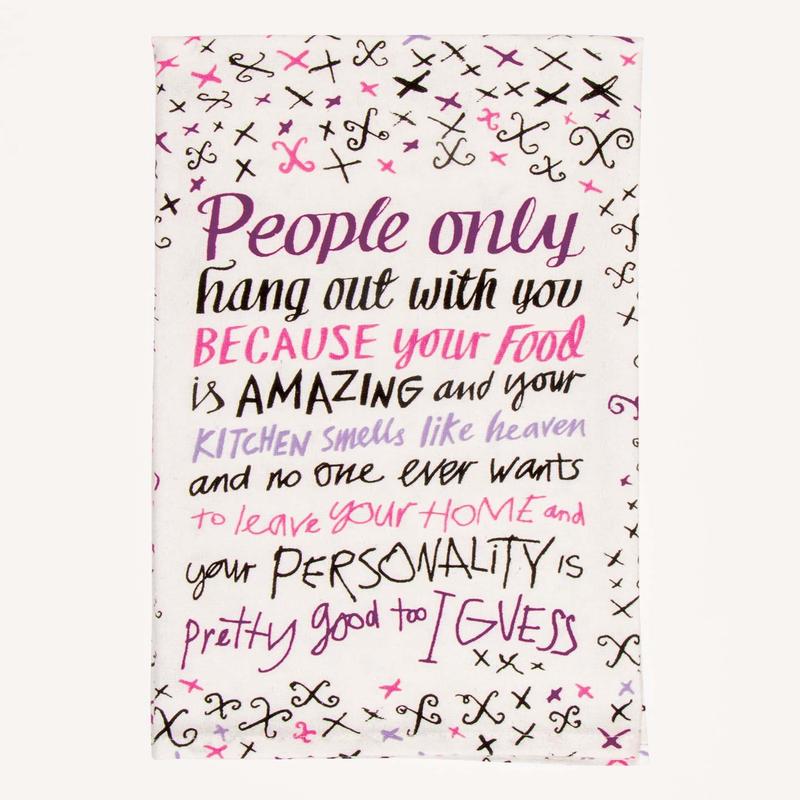 People only
hang out with you
BECAUSE your Food
is AMAZING and your
KITCHEN smells like heaven
and no one ever wants
to leave your HOME and
your PERSONALITY is
pretty good too I GUESS